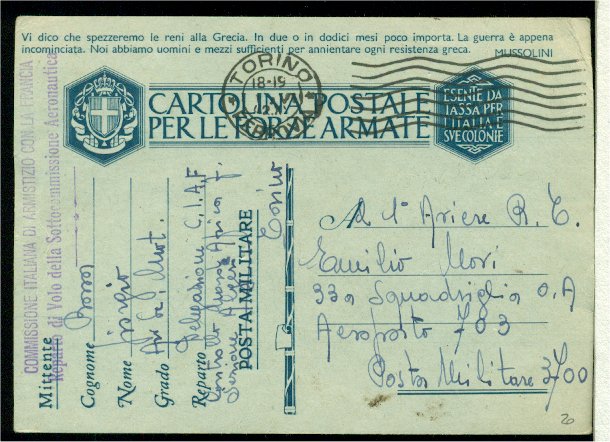 Vi dico che spezzeremo le reni alla Grecia. In due o in dodici mesi poco importa. La guerra è appena
incominciata. Noi abbiamo uomini e mezzi sufficienti per annientare ogni resistenza greca. MUSSOLINI
TORINO
18-19
FERROVIA
CARTOLINA POSTALE
PER LE FORZE ARMATE
ESENTE DA
TASSA PER
L'ITALIA E
SVE COLONIE
COMMISSIONE ITALIANA DI ARMISTIZIO CON LA FRANCIA
Reparto di Volo della Sottocommissione Aeronautica
Mittente
Cognome
Nome Giorgio
Grado Av. Sc. Mot.
Reparto Delegazione C.I.A.F
Controllo Africa
Algeri
POSTA MILITARE
Torino
Al 1° Aviere R. T.
Emilio Mori
33a Squadriglia O.A
Aeroporto 703
Posta Militare 3700
20